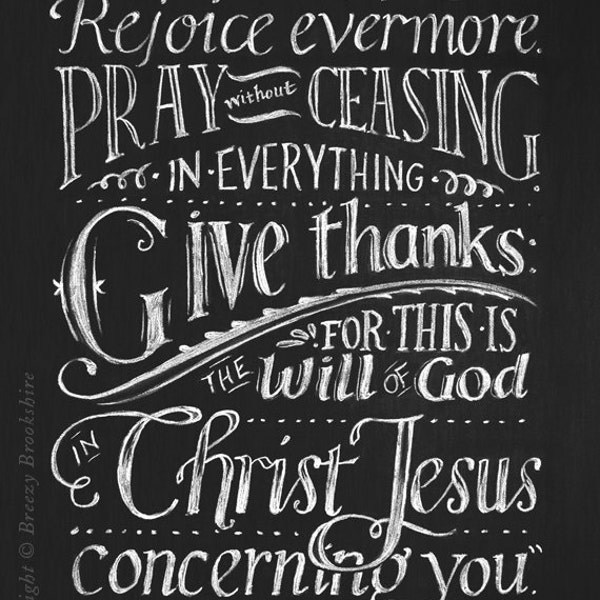 Rejoice evermore.
PRAY without CEASING.
IN·EVERYTHING
Give thanks:
FOR·THIS·IS
THE Will OF God
IN Christ Jesus
concerning you."
ight © Breezy Brookshire